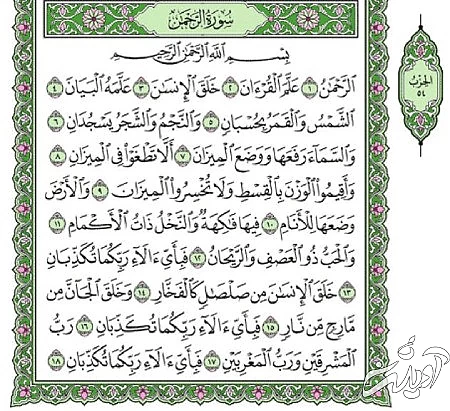 سُورَةُ الرَّحْمَٰن
بِسْمِ اللَّهِ الرَّحْمَٰنِ الرَّحِيمِ
الرَّحْمَٰنُ ١ عَلَّمَ الْقُرْءَانَ ٢ خَلَقَ الْإِنسَٰنَ ٣ عَلَّمَهُ الْبَيَانَ ٤
الشَّمْسُ وَالْقَمَرُ بِحُسْبَانٍ ٥ وَالنَّجْمُ وَالشَّجَرُ يَسْجُدَانِ ٦
وَالسَّمَاءَ رَفَعَهَا وَوَضَعَ الْمِيزَانَ ٧ أَلَّا تَطْغَوْا فِي الْمِيزَانِ ٨
وَأَقِيمُوا الْوَزْنَ بِالْقِسْطِ وَلَا تُخْسِرُوا الْمِيزَانَ ٩ وَالْأَرْضَ
وَضَعَهَا لِلْأَنَامِ ١٠ فِيهَا فَٰكِهَةٌ وَالنَّخْلُ ذَاتُ الْأَكْمَامِ ١١
وَالْحَبُّ ذُو الْعَصْفِ وَالرَّيْحَانُ ١٢ فَبِأَيِّ ءَالَاءِ رَبِّكُمَا تُكَذِّبَانِ
١٣ خَلَقَ الْإِنسَٰنَ مِن صَلْصَٰلٍ كَالْفَخَّارِ ١٤ وَخَلَقَ الْجَانَّ مِن
مَّارِجٍ مِّن نَّارٍ ١٥ فَبِأَيِّ ءَالَاءِ رَبِّكُمَا تُكَذِّبَانِ ١٦ رَبُّ
الْمَشْرِقَيْنِ وَرَبُّ الْمَغْرِبَيْنِ ١٧ فَبِأَيِّ ءَالَاءِ رَبِّكُمَا تُكَذِّبَانِ ١٨
الحِزْبُ
٥٤